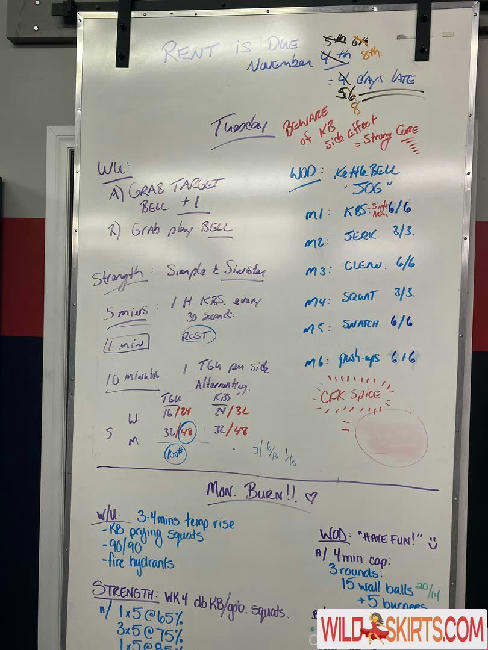 RENT IS DUE
5th 6th
November 4th 8th
= 4 days LATE
5 6
8
Tuesday
BEWARE
of KB
side affect
= Strong Core
W/U:
A) GRAB TARGET
BELL +1
B) Grab play BELL
Strength: Simple & Sinister
5 mins: 1 H KBS every
30 seconds
1 min REST
10 minutes 1 TGU per side
Alternating.
TGU KBS
W 16/24 24/32
S
M 32/48 32/48
WOD: KettleBELL
"JOG"
m1: KBS 6/6
m2: JERK 3/3
m3: CLEAN 6/6
m4: SQUAT 3/3
m5: SNATCH 6/6
m6: push-ups 6/6
SPICE
=
Mon. Burn!! ♡
W/U: 3-4mins temp rise
-KB prying squats
-90/90
-fire hydrants
STRENGTH: WK4 dbKB/gob. squats.
A/ 1x5@65%
3x5@75%
WOD: "HAVE FUN!"
A/ 4min cap:
3 rounds:
15 wall balls 20/14
+5 burpees
WILDSKIRTS.COM